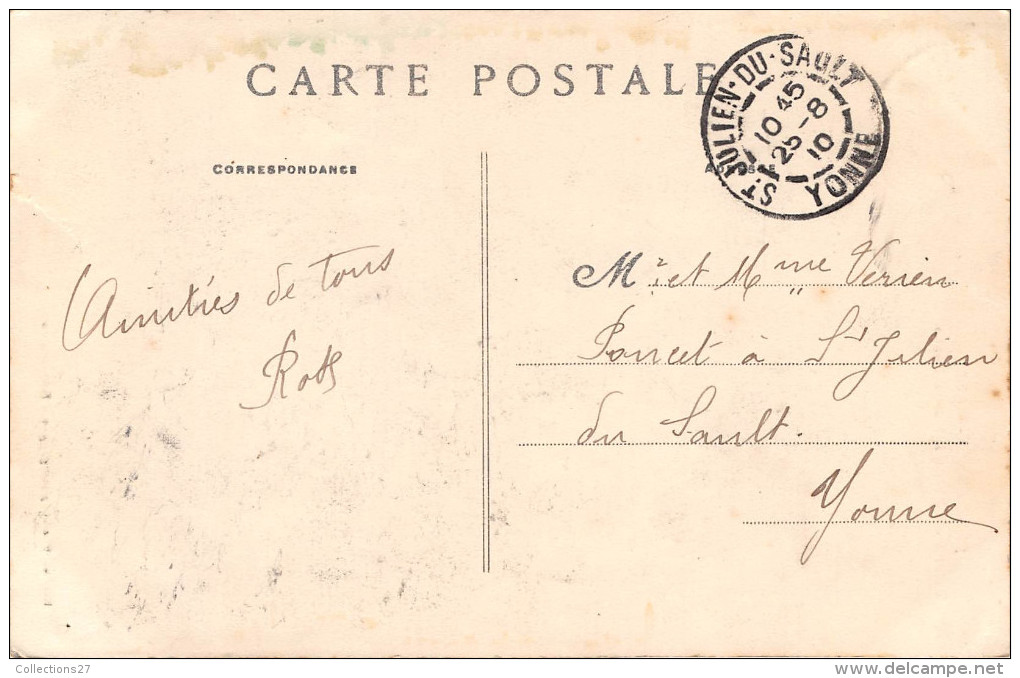 CARTE POSTALE
ST JULIEN-DU-SAULT
10 45
25-8
10
YONNE
CORRESPONDANCE
ADRESSE
Amitiés de tous
Mr et Mme Verien
Poncet à St Julien
du Sault.
Yonne
Collections27
www.delcampe.net